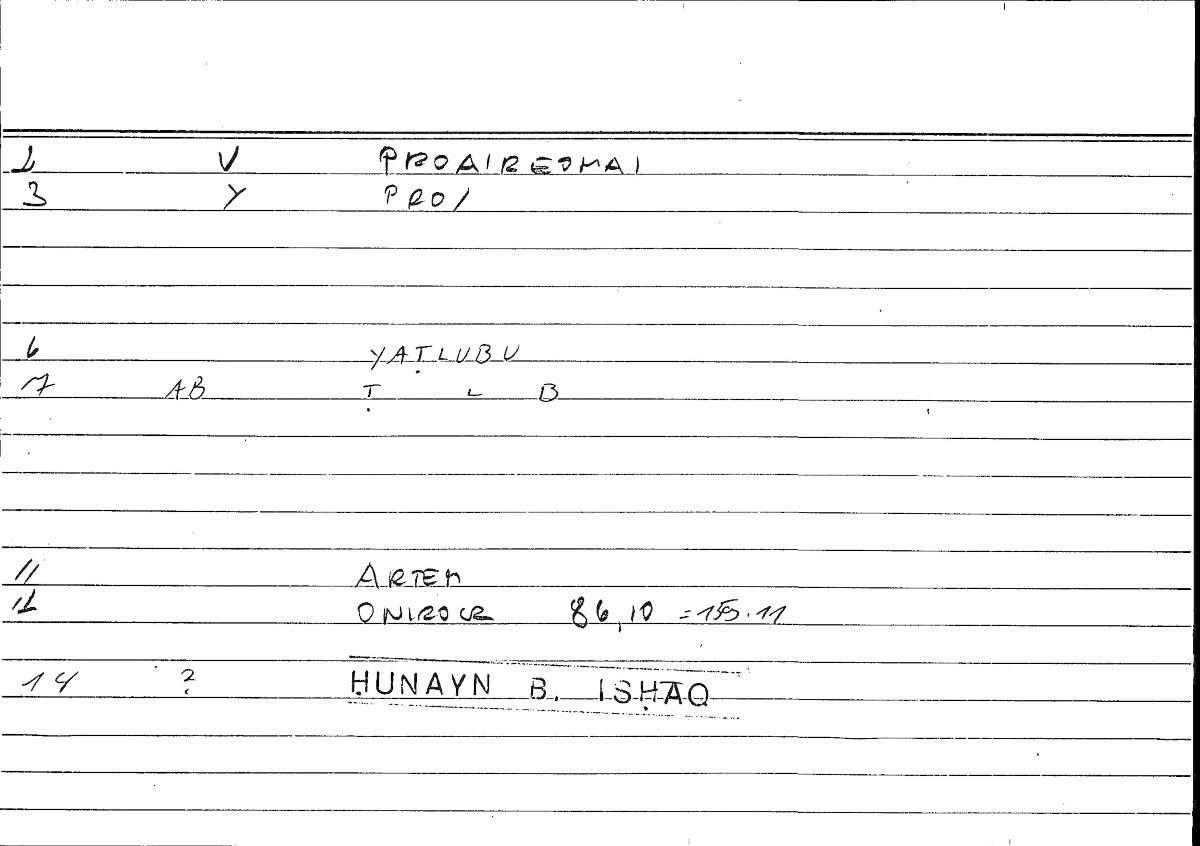 2 V PROAIREOMAI
3 Y PRO/
6 YAṬLUBU
7 AB Ṭ L B
11 ARTEM
12 ONIROCR 86,10 =155.11
14 ? ḤUNAYN B. ISḤAQ